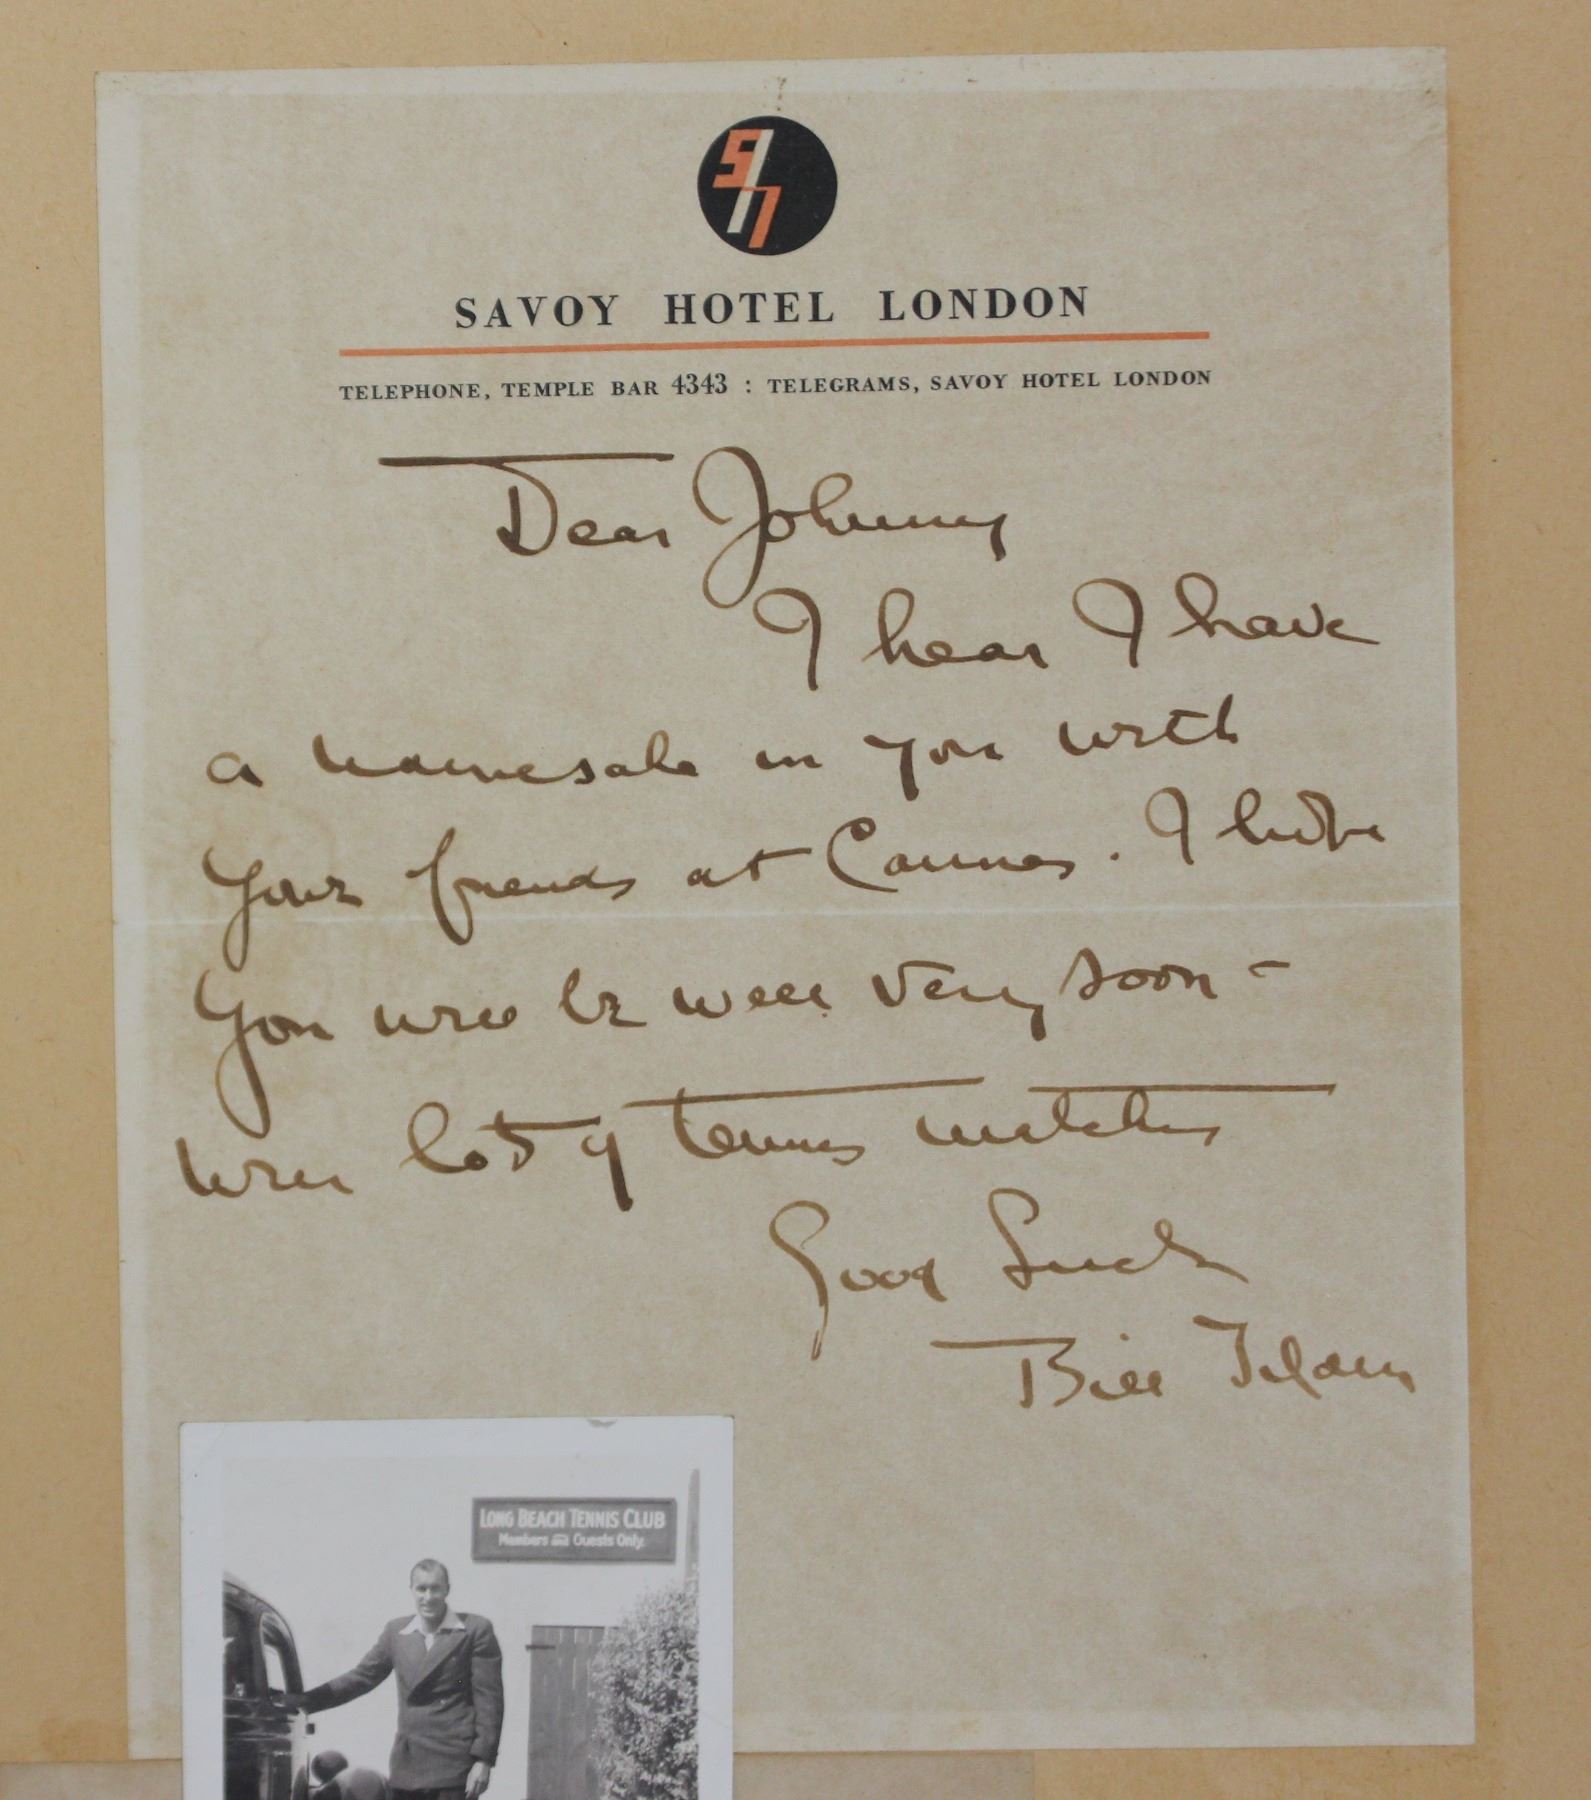 SAVOY HOTEL LONDON
TELEPHONE, TEMPLE BAR 4343 : TELEGRAMS, SAVOY HOTEL LONDON
Dear Johnny
I hear I have
a namesake in you with
your friends at Cannes. I hope
you will be well very soon -
win lots of tennis matches
Good Luck
Bill Tilden
LONG BEACH TENNIS CLUB
Members and Guests Only.